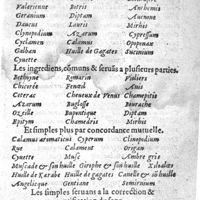 Valerienne Botris Anthemis
Geranium Diptam Aucune
Daucus Laurens Mirhis
Clynopodium Azarum Cypressm
Cyclamen Calamus Opopanax
Galban Huille de Gagates Succinum
Cynette
Les ingrediens, cõmuns & seruãs a plusieurs parties.
Bethoyne Romarin Violiers
Chicorée Fenoil Anis
Ceterac Cheueux de Venus Champitis
Azarum Buglosse Bourache
Ozeille Boputique Diptam
Epitym Chamedris Mirhis
Et simples plus par concordance mutuelle.
Calamus aromaticus Cyperum Clinopodium
Rue Calament Origan
Cynette Musc Ambre gris
Muscade & son huille Girophe & son huille Xiloaloes
Huille de Karabe Huille de gagates Canelle & sõ huille
Angelicque Gentiane Semirnum
Les simples seruans a la correction &